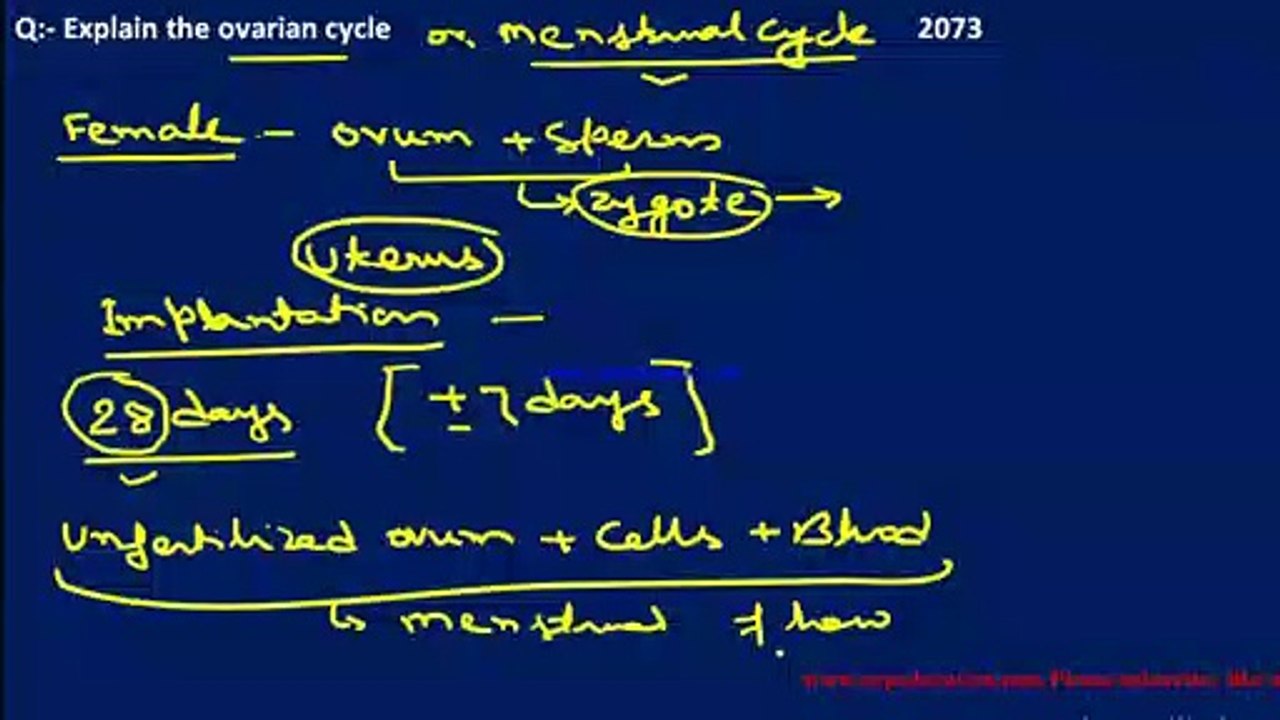 Q:- Explain the ovarian cycle or menstrual cycle 2073
Female - ovum + sperms
↳ zygote →
uterus
Implantation -
28 days [± 7 days]
Unfertilized ovum + Cells + Blood
↳ menstrual flow